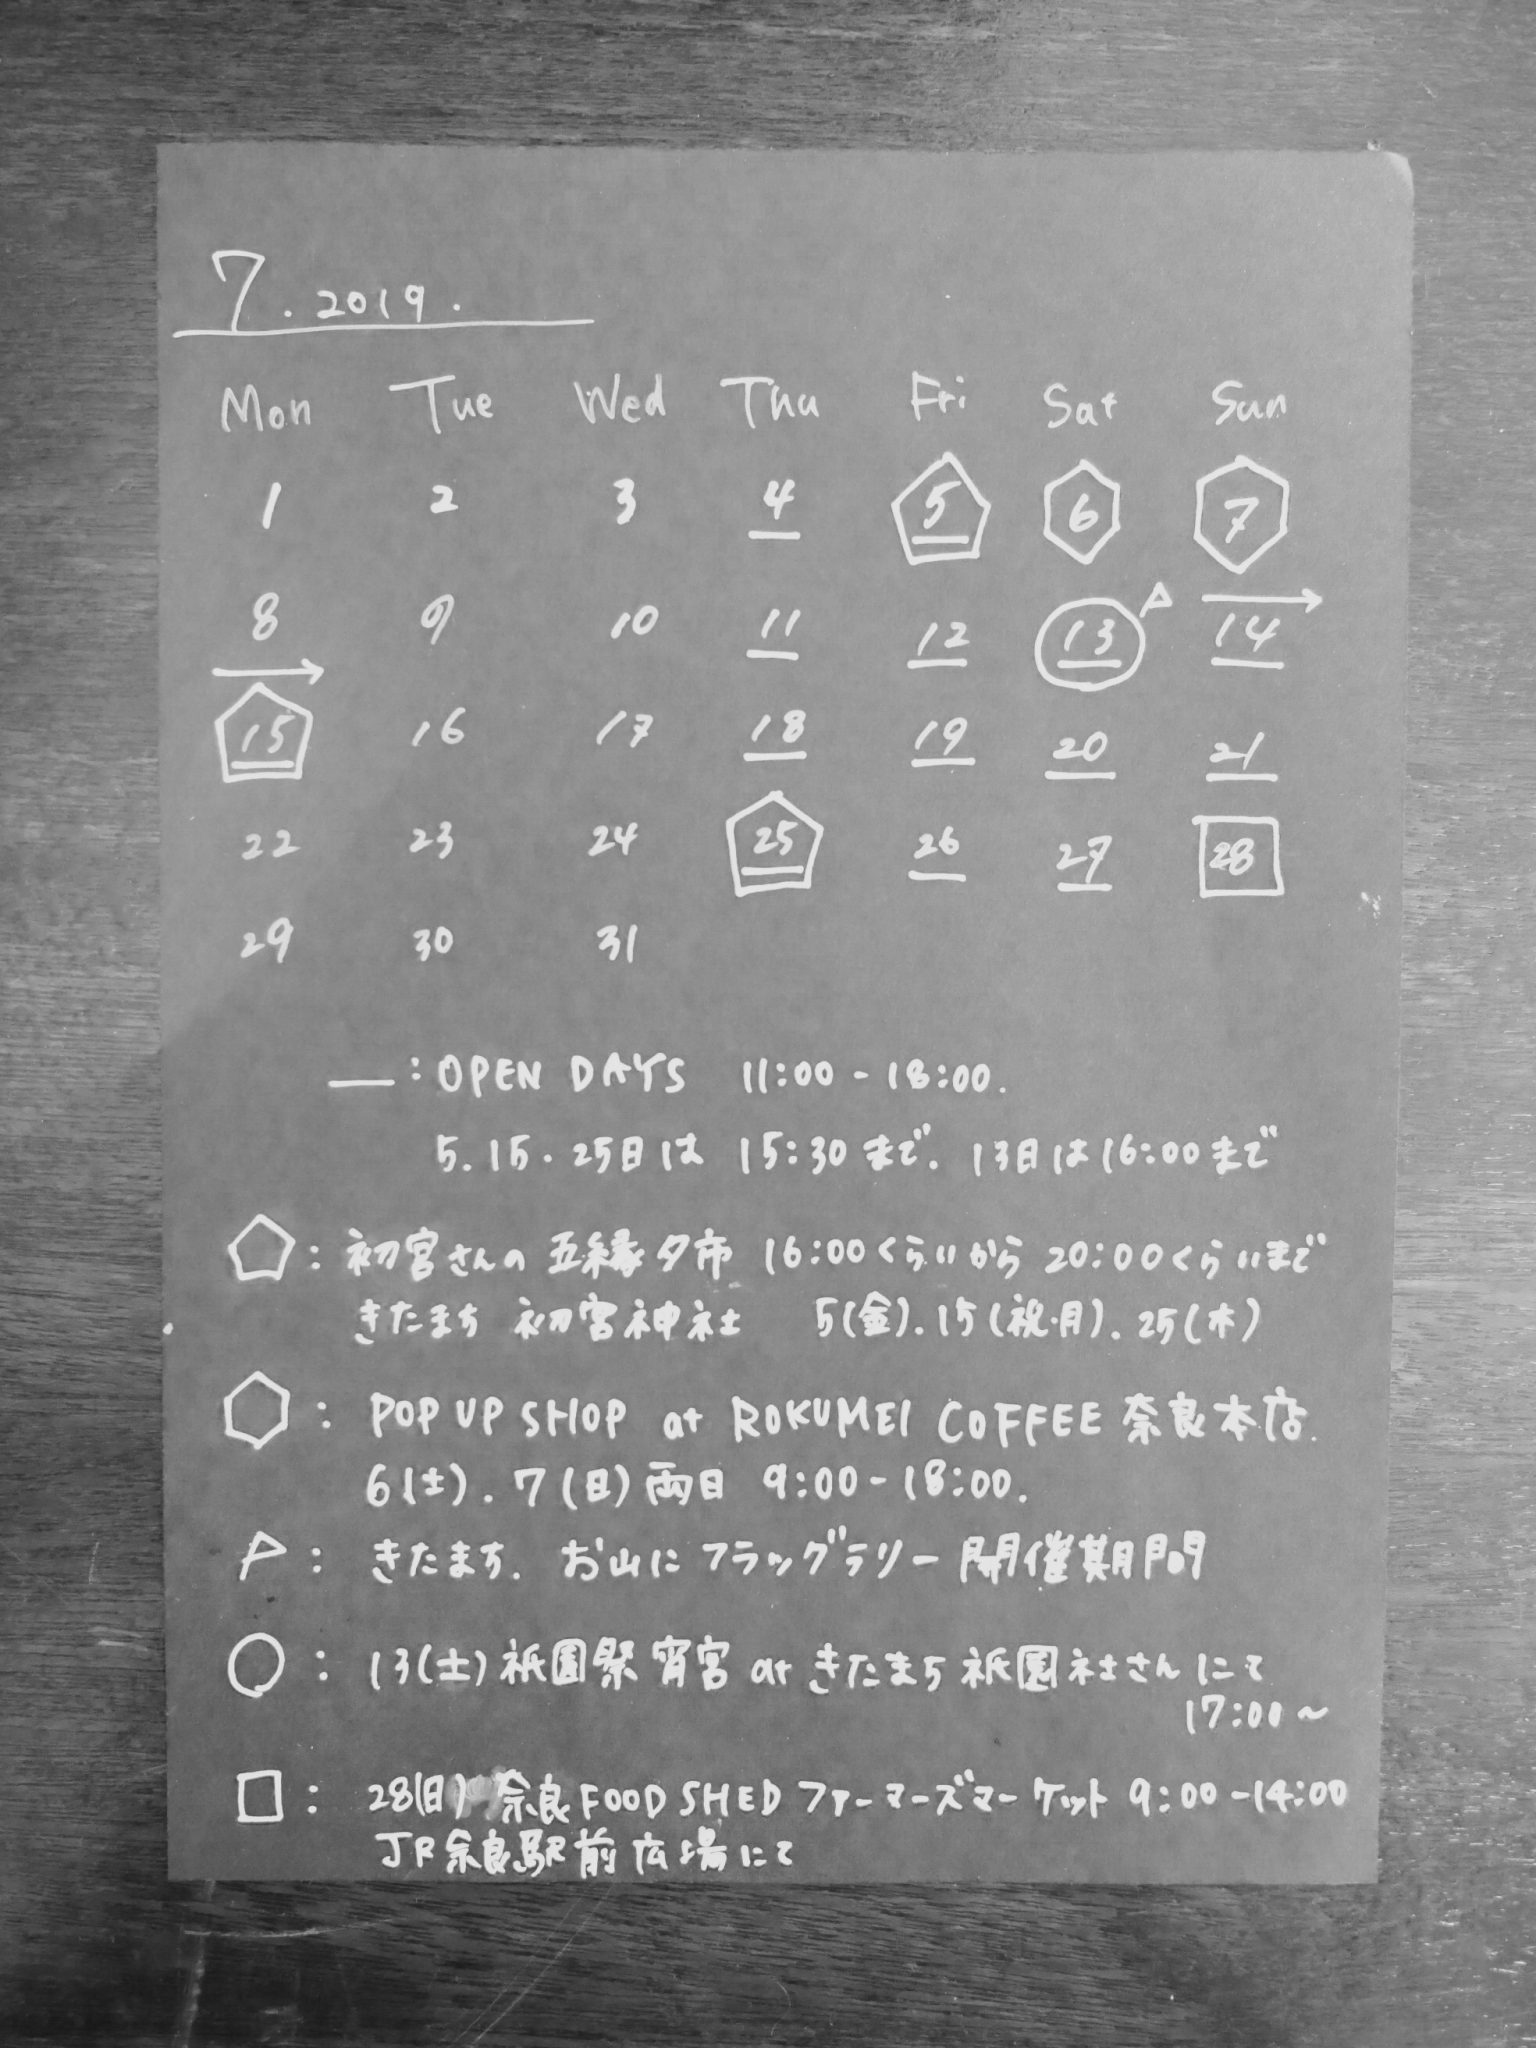 7. 2019.
Mon Tue Wed Thu Fri Sat Sun
1 2 3 4 5 6 7
8 9 10 11 12 13 14
15 16 17 18 19 20 21
22 23 24 25 26 27 28
29 30 31
: OPEN DAYS 11:00 - 18:00.
5. 15. 25日は 15:30まで. 13日は16:00まで
: 初宮さんの 五縁夕市 16:00くらいから 20:00くらいまで
きたまち 初宮神社 5(金). 15(祝・月). 25(木)
: POP UP SHOP at ROKUMEI COFFEE 奈良本店.
6(土). 7(日) 両日 9:00 - 18:00.
: きたまち. お山に フラッグラリー 開催期間
: 13(土) 祇園祭 宵宮 at きたまち 祇園社さんにて
17:00~
: 28(日) 奈良 FOOD SHED ファーマーズマーケット 9:00 - 14:00
JR奈良駅前広場にて